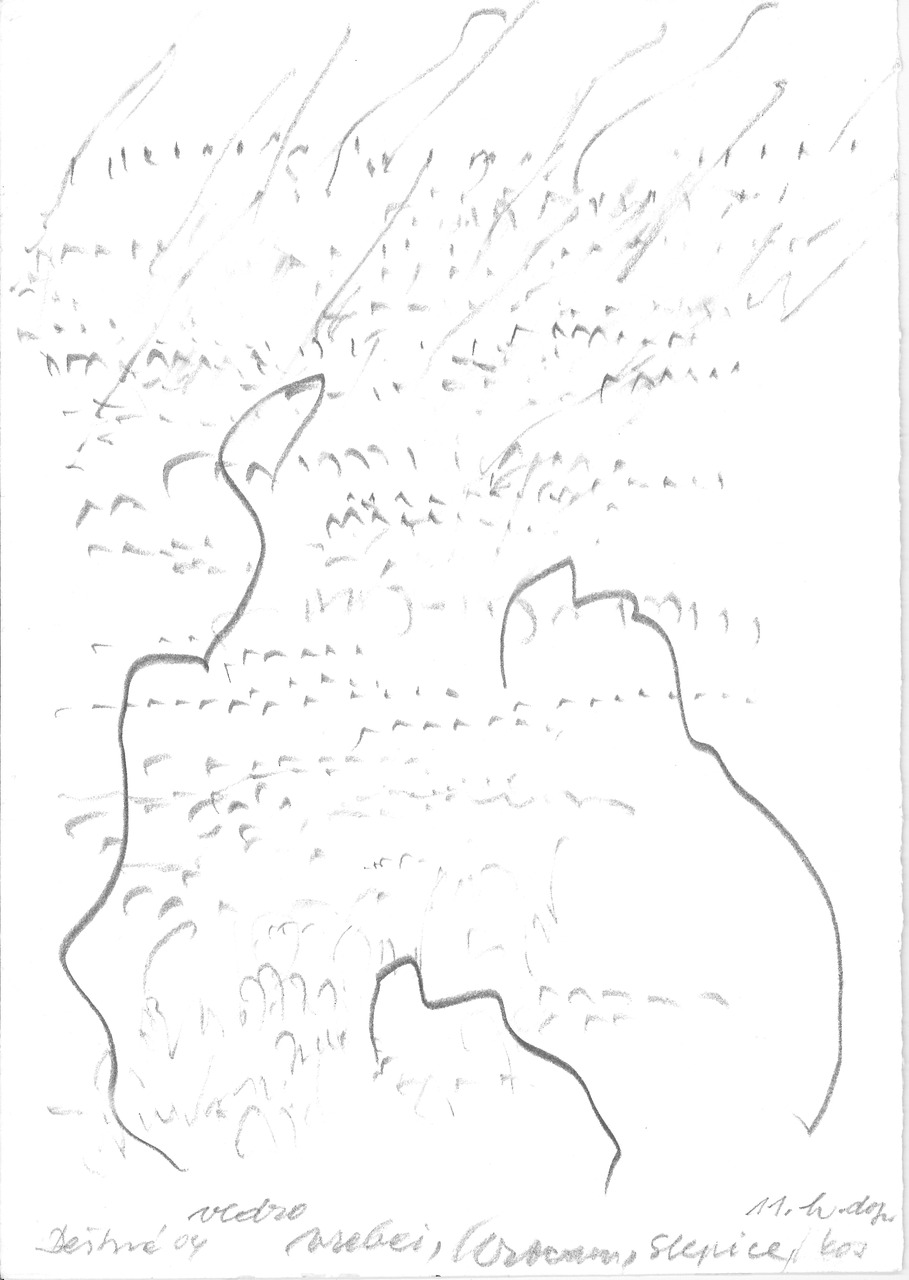 vedro 11. h. dop.
Deštné 04 vrabci, slepice, kos